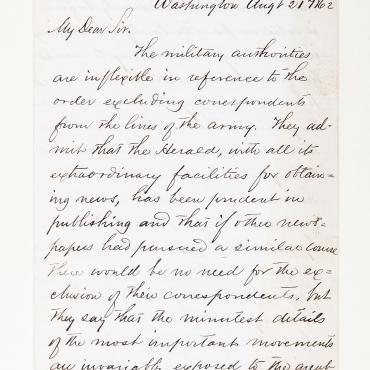 Washington Augt 21 1862
My Dear Sir.
The military authorities
are inflexible in reference to the
order excluding correspondents
from the lines of the army. They ad-
mit that the Herald, with all its
extraordinary facilities for obtain-
ing news, has been prudent in
publishing and that if other news-
papers had pursued a similar course
there would be no need for the ex-
clusion of their correspondents, but
they say that the minutest details
of the most important movements
are invariably exposed to the